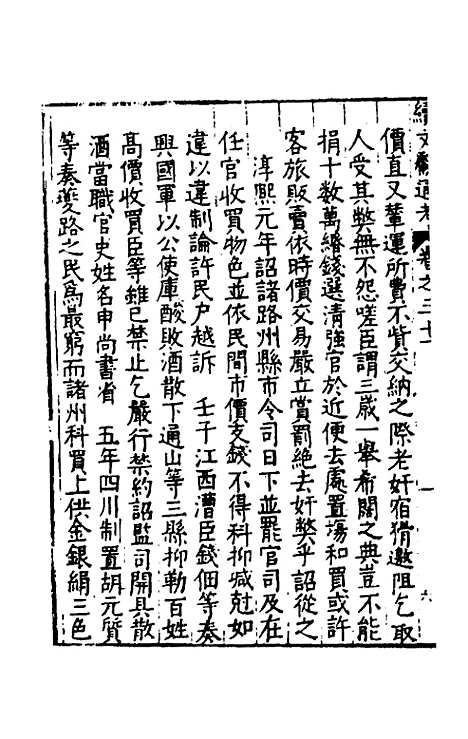 續文獻通考 卷之三十 六
價直又輦運所費不貲交納之際老奸宿猾邀阻乞取
人受其弊無不怨嗟臣謂三歲一舉希闊之典豈不能
捐十數萬緡錢選清強官於近便去處置場和買或許
客旅販賣依時價交易嚴立賞罰絶去奸弊乎詔從之
淳熙元年詔諸路州縣市令司日下並罷官司及在
任官收買物色並依民間市價支錢不得科抑減尅如
違以違制論許民户越訴 壬子江西漕臣錢佃等奏
興國軍以公使庫酸敗酒散下通山等三縣抑勒百姓
高價收買臣等雖已禁止乞嚴行禁約詔監司開具散
酒當職官吏姓名申尚書省 五年四川制置胡元質
等奏夔路之民爲最窮而諸州科買上供金銀絹三色